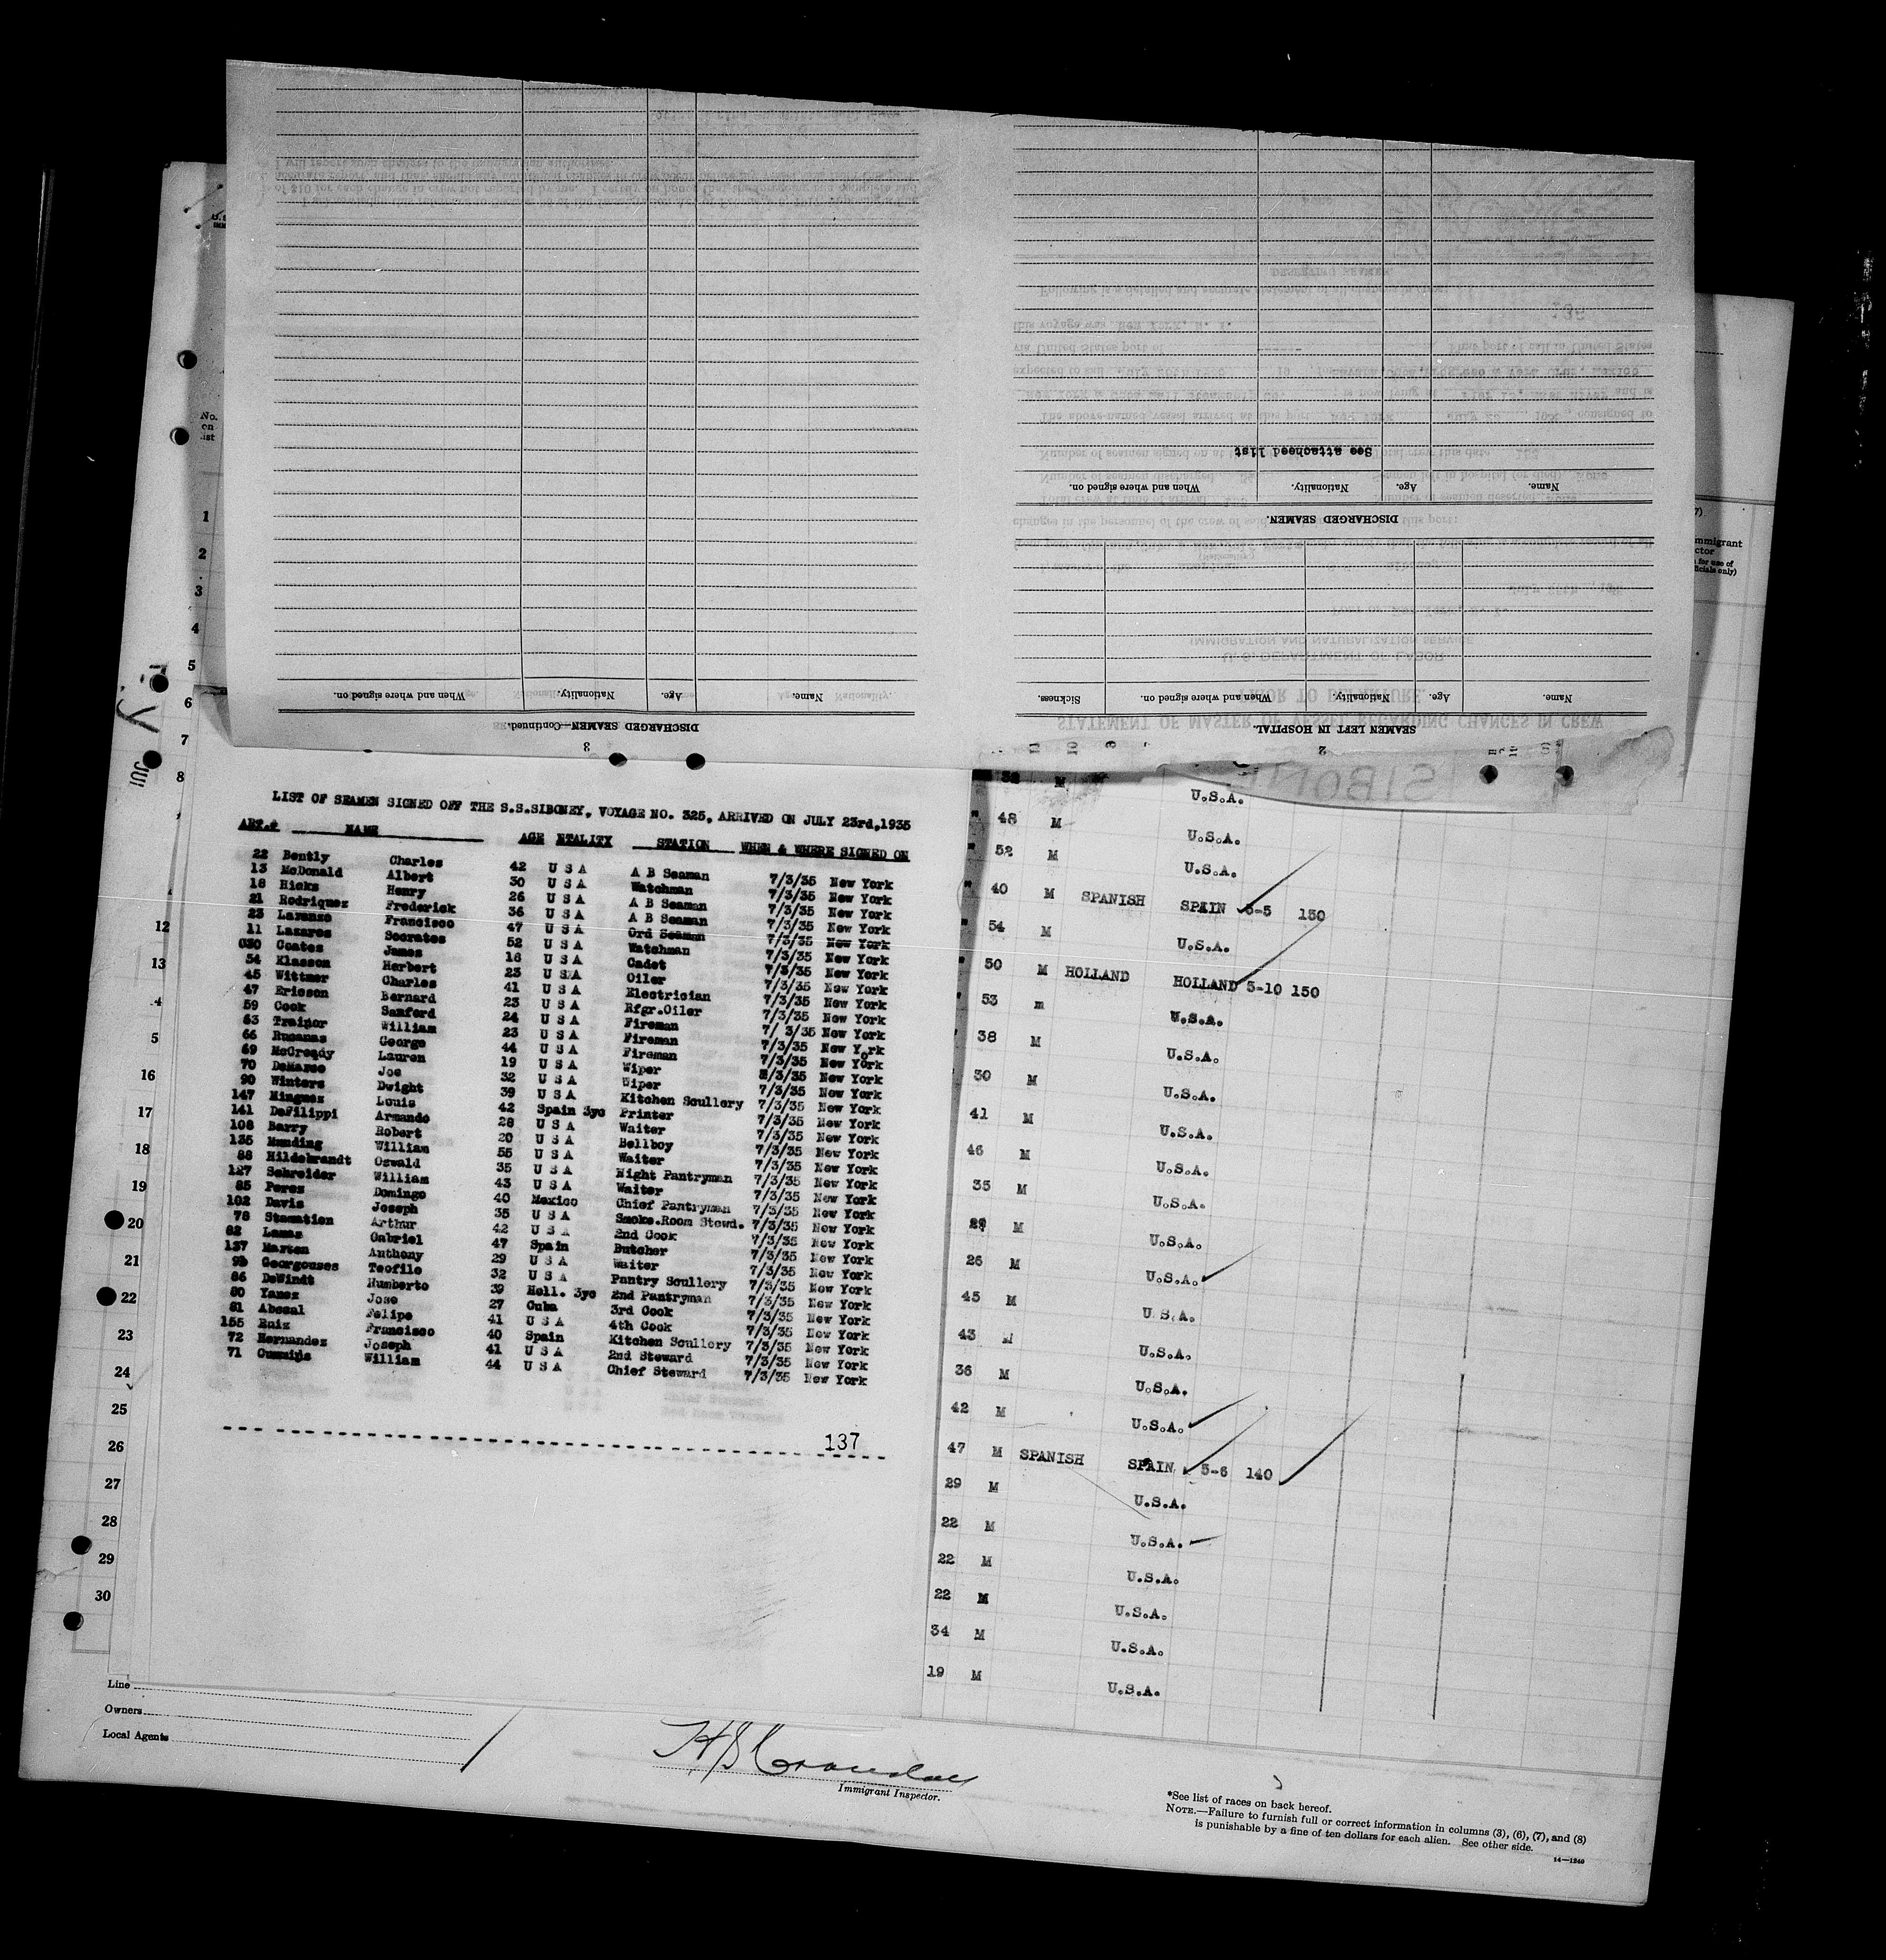 DISCHARGED SEAMEN—Continued.
3
Name. Age. Nationality. When and where signed on.
SEAMEN LEFT IN HOSPITAL.
2
Name. Age. Nationality. When and where signed on. Sickness.
DISCHARGED SEAMEN.
Name. Age. Nationality. When and where signed on.
See attacheed list
No.
on
ist
1
2
3
4
5
6
7
8
12
13
16
17
18
19
20
21
22
23
24
25
26
27
28
29
30
LIST OF SEAMEN SIGNED OFF THE S.S.SIBONEY, VOYAGE NO. 325, ARRIVED ON JULY 23rd,1935
ART.# NAME AGE NTALITY STATION WHEN & WHERE SIGNED ON
22 Bently Charles 42 U S A A B Seaman 7/3/35 New York
13 McDonald Albert 30 U S A Watchman 7/3/35 New York
18 Hicks Henry 26 U S A A B Seaman 7/3/35 New York
21 Rodriquez Frederick 36 U S A A B Seaman 7/3/35 New York
23 Laranzo Francisco 47 U S A Ord Seaman 7/3/35 New York
11 Lazares Socrates 52 U S A Watchman 7/3/35 New York
030 Coates James 18 U S A Cadet 7/3/35 New York
54 Klasson Herbert 23 U S A Oiler 7/3/35 New York
45 Wittmer Charles 41 U S A Electrician 7/3/35 New York
47 Ericson Bernard 23 U S A Rfgr.Oiler 7/3/35 New York
59 Cook Sanford 24 U S A Fireman 7/ 3/35 New York
63 Trainor William 23 U S A Fireman 7/3/35 New York
66 Rusanas George 44 U S A Fireman 7/3/35 New York
69 McCready Lauren 19 U S A Wiper 7/3/35 New York
70 DeMarse Joe 32 U S A Wiper 7/3/35 New York
90 Winters Dwight 39 U S A Kitchen Scullery 7/3/35 New York
147 Minguez Louis 42 Spain 3yc Printer 7/3/35 New York
141 DeFilippi Armando 28 U S A Waiter 7/3/35 New York
108 Barry Robert 20 U S A Bellboy 7/3/35 New York
135 Munding William 55 U S A Waiter 7/3/35 New York
88 Hildebrandt Oswald 35 U S A Night Pantryman 7/3/35 New York
127 Schreider William 43 U S A Waiter 7/3/35 New York
85 Perez Domingo 40 Mexico Chief Pantryman 7/3/35 New York
102 Davis Joseph 35 U S A Smoke.Room Stewd. 7/3/35 New York
78 Stamation Arthur 42 U S A 2nd Cook 7/3/35 New York
82 Lamas Gabriel 47 Spain Butcher 7/3/35 New York
137 Marten Anthony 29 U S A Waiter 7/3/35 New York
Georgouses Teofilo 32 U S A Pantry Scullery 7/3/35 New York
86 DeWindt Humberto 39 Holl. 3yc 2nd Pantryman 7/3/35 New York
80 Yanez Jose 27 Cuba 3rd Cook 7/3/35 New York
81 Abesal Felipe 41 U S A 4th Cook 7/3/35 New York
155 Ruiz Francisco 40 Spain Kitchen Scullery 7/3/35 New York
72 Hernandez Joseph 41 U S A 2nd Steward 7/3/35 New York
71 Cummins William 44 U S A Chief Steward 7/3/35 New York
137
SIBONE
mmigrant
ctor
M U.S.A.
48 M U.S.A.
52 M U.S.A.
40 M SPANISH SPAIN 5-5 150
54 M U.S.A.
50 M HOLLAND HOLLAND 5-10 150
53 m U.S.A.
38 M U.S.A.
30 M U.S.A.
41 M U.S.A.
46 M U.S.A.
35 M U.S.A.
M U.S.A.
26 M U.S.A.
45 M U.S.A.
43 M U.S.A.
36 M U.S.A.
42 M U.S.A.
47 M SPANISH SPAIN 5-6 140
29 M U.S.A.
22 M U.S.A.
22 M U.S.A.
22 M U.S.A.
34 M U.S.A.
19 M U.S.A.
Line
Owners
Local Agents
Immigrant Inspector.
*See list of races on back hereof.
NOTE.—Failure to furnish full or correct information in columns (3), (6), (7), and (8)
is punishable by a fine of ten dollars for each alien. See other side.
14—1240